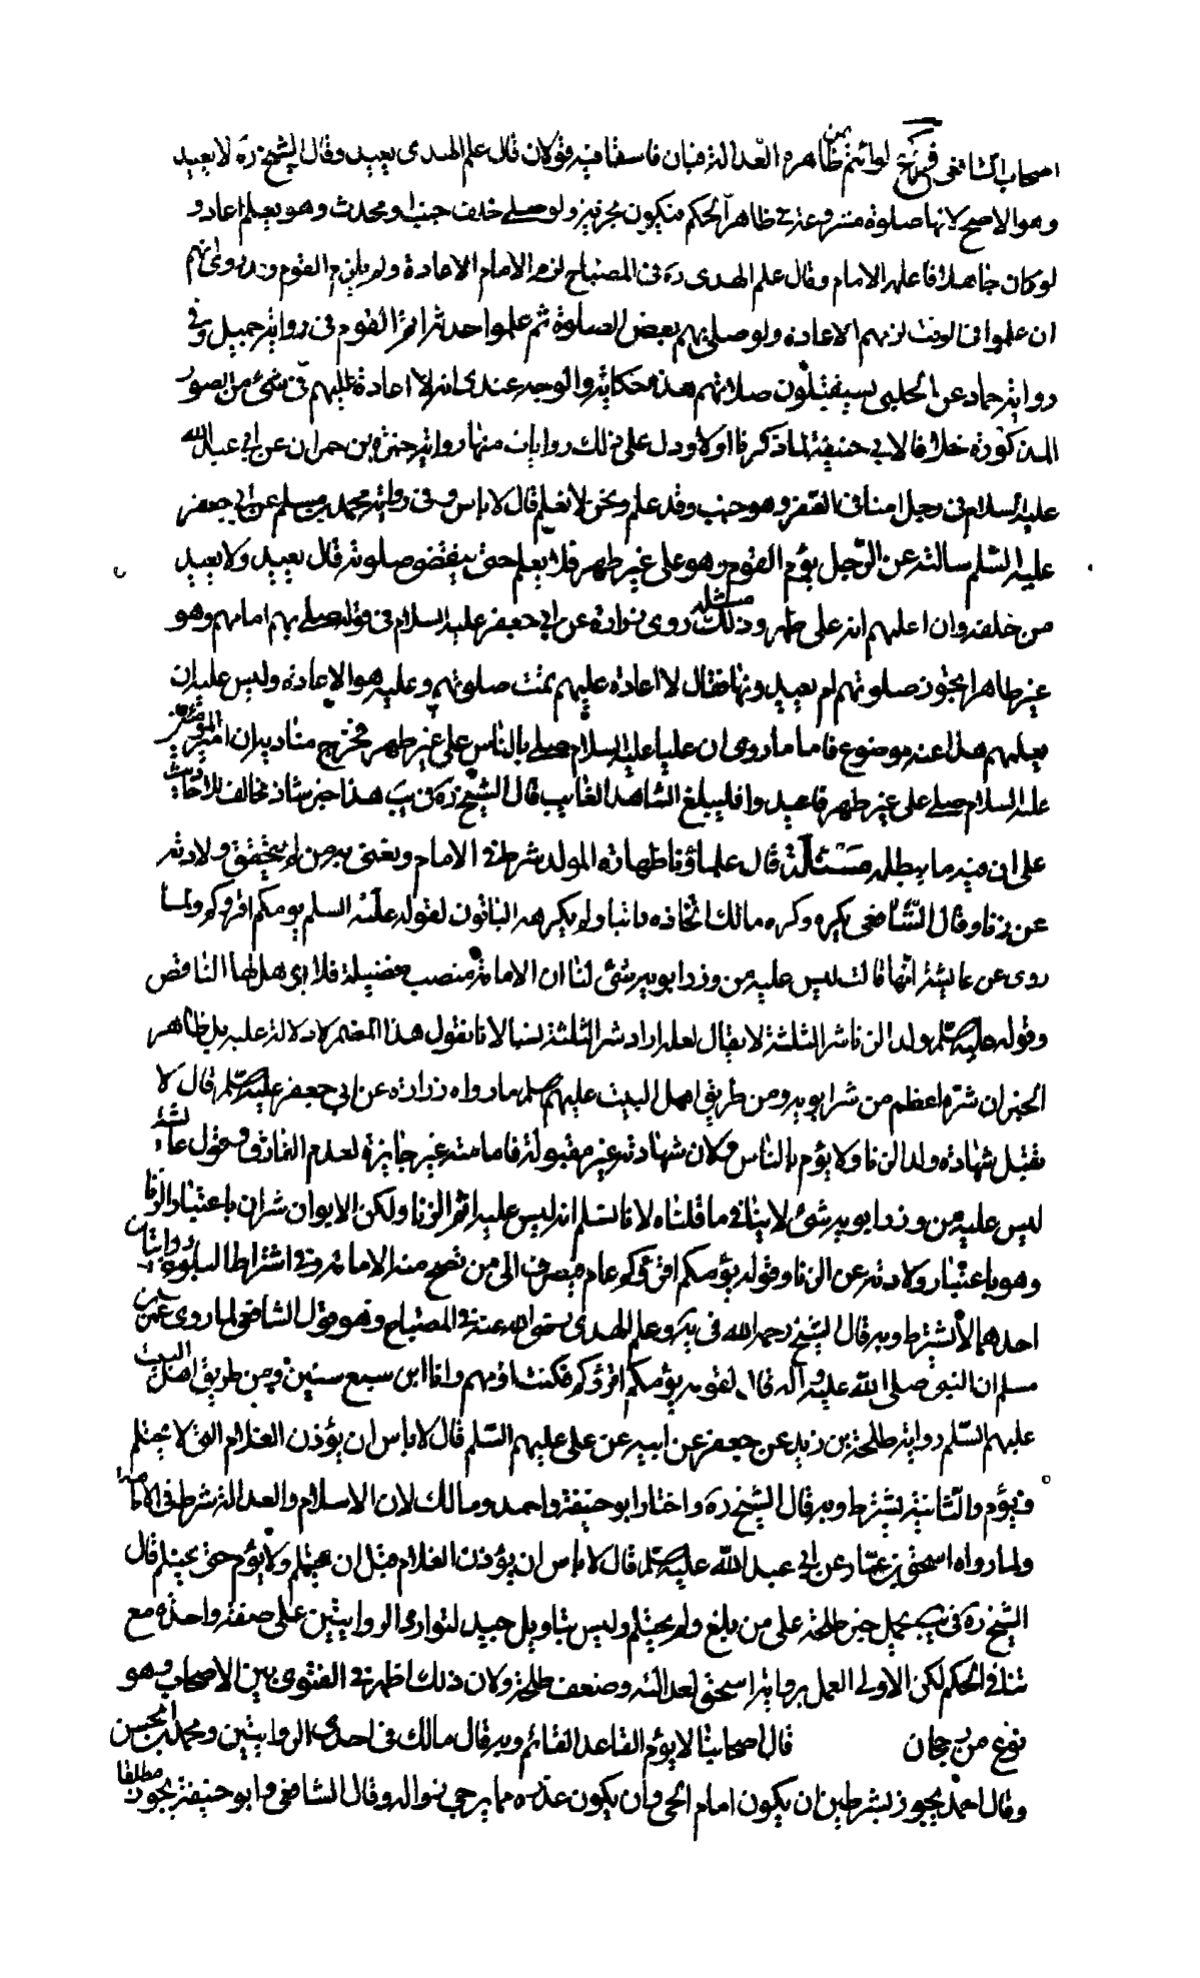 اصحاب الشافعى فرع لو ائتم بمن ظاهره العدالة فبان فاسقا فيه قولان قال علم الهدى يعيد وقال الشيخ ره لا يعيد
وهو الاصح لانها صلوة مشروعة فى ظاهر الحكم فيكون مجزية ولو صلى خلف جنب او محدث وهو يعلم اعاد و
لو كان جاهلا فاعلمه الامام وقال علم الهدى ره فى المصباح لزم الامام الاعادة ولم يلزم القوم وقد روى انهم
ان علموا فى الوقت لزمهم الاعادة ولو صلى بهم بعض الصلوة ثم علموا حدثه اتم القوم فى رواية جميل وفى
رواية حماد عن الحلبى يستقبلون صلاتهم هذه حكايته والوجه عندى انه لا اعادة عليهم فى شئ من الصور
المذكورة خلافا لابى حنيفة لما ذكرناه اولا ودل على ذلك روايات منها رواية حمزة بن حمران عن ابى عبد الله
عليه السلام فى رجل امنا فى السفر وهو جنب وقد علم ونحن لا نعلم قال لا باس وفى رواية محمد بن مسلم عن ابى جعفر
عليه السلم سالته عن الرجل يؤم القوم وهو على غير طهر فلا يعلم حتى ينقضى صلوته قال يعيد ولا يعيد
من خلفه وان اعلمهم انه على غير طهر ومثله روى زرارة عن ابى جعفر عليه السلام فى قوم صلى بهم امامهم وهو
غير طاهر ايجوز صلوتهم ام يعيدونها فقال لا اعادة عليهم تمت صلوتهم وعليه هو الاعادة وليس عليه ان
يعلمهم هذا عنه موضوع فاما ما روى ان عليا عليه السلام صلى بالناس على غير طهر فخرج مناديه ان امير المؤمنين
عليه السلام صلى على غير طهر فاعيدوا فليبلغ الشاهد الغايب قال الشيخ ره فى يب هذا خبر شاذ مخالف للاحاديث
على ان فيه ما يبطله مسئلة قال علماؤنا طهارة المولد شرط فى الامام ونعنى به من لم يتحقق ولادته
عن زنا وقال الشافعى يكره وكره مالك اتخاذه راتبا ولم يكرهه الباقون لقوله عليه السلم يؤمكم اقرؤكم ولما
روى عن عايشة انها قالت ليس عليه من وزر ابويه شئ لنا ان الامامة منصب فضيلة فلا يؤهل لها الناقص
وقوله عليه السلم ولد الزنا شر الثلثة لا يقال لعله اراد شر الثلثة نسبا لانا نقول هذا المضمر لا دلالة عليه بل ظاهر
الخبر ان شره اعظم من شر ابويه ومن طريق اهل البيت عليهم السلم ما رواه زرارة عن ابى جعفر عليه السلم قال لا
يقبل شهادة ولد الزنا ولا يؤم بالناس ولان شهادته غير مقبولة فامامته غير جايزة لعدم الفارق وقول عائشة
ليس عليه من وزر ابويه شئ لا ينافى ما قلناه لانا نسلم انه ليس عليه اثم الزنا ولكن الابوان شران باعتبار الزنا
وهو باعتبار ولادته عن الزنا وقوله يؤمكم اقرؤكم عام فيصرف الى من تصح منه الامامة وفى اشتراط البلوغ روايتان
احدهما لا يشترط وبه قال الشيخ رحمه الله فى ير وعلم الهدى رضى الله عنه فى المصباح وهو قول الشافعى لما روى عمرو بن
مسلم ان النبى صلى الله عليه وآله قال لقومه يؤمكم اقرؤكم فكنت اؤمهم وانا ابن سبع سنين ومن طريق اهل البيت
عليهم السلم رواية طلحة بن زيد عن جعفر عن ابيه عن على عليهم السلم قال لا باس ان يؤذن الغلام الذى لا يحتلم
ويؤم والثانية يشترط وبه قال الشيخ ره واختار ابو حنيفة واحمد ومالك لان الاسلام والعدالة شرط فى الامامة
ولما رواه اسحق بن عمار عن ابى عبد الله عليه السلم قال لا باس ان يؤذن الغلام قبل ان يحتلم ولا يؤم حتى يحتلم قال
الشيخ ره فى يب يحمل خبر طلحة على من بلغ ولم يحتلم وليس بتاويل جيد لتوارد الروايتين على صفة واحدة مع
تنافى الحكم لكن الاولى العمل برواية اسحق لعدالته وضعف طلحة ولان ذلك اظهر فى الفتوى بين الاصحاب وهو
نوع من رجحان قال اصحابنا لا يؤم القاعد القائم وبه قال مالك فى احدى الروايتين ومحمد بن الحسن
وقال احمد يجوز بشرطين ان يكون امام الحى وان يكون عذره مما يرجى زواله وقال الشافعى وابو حنيفة يجوز مطلقا